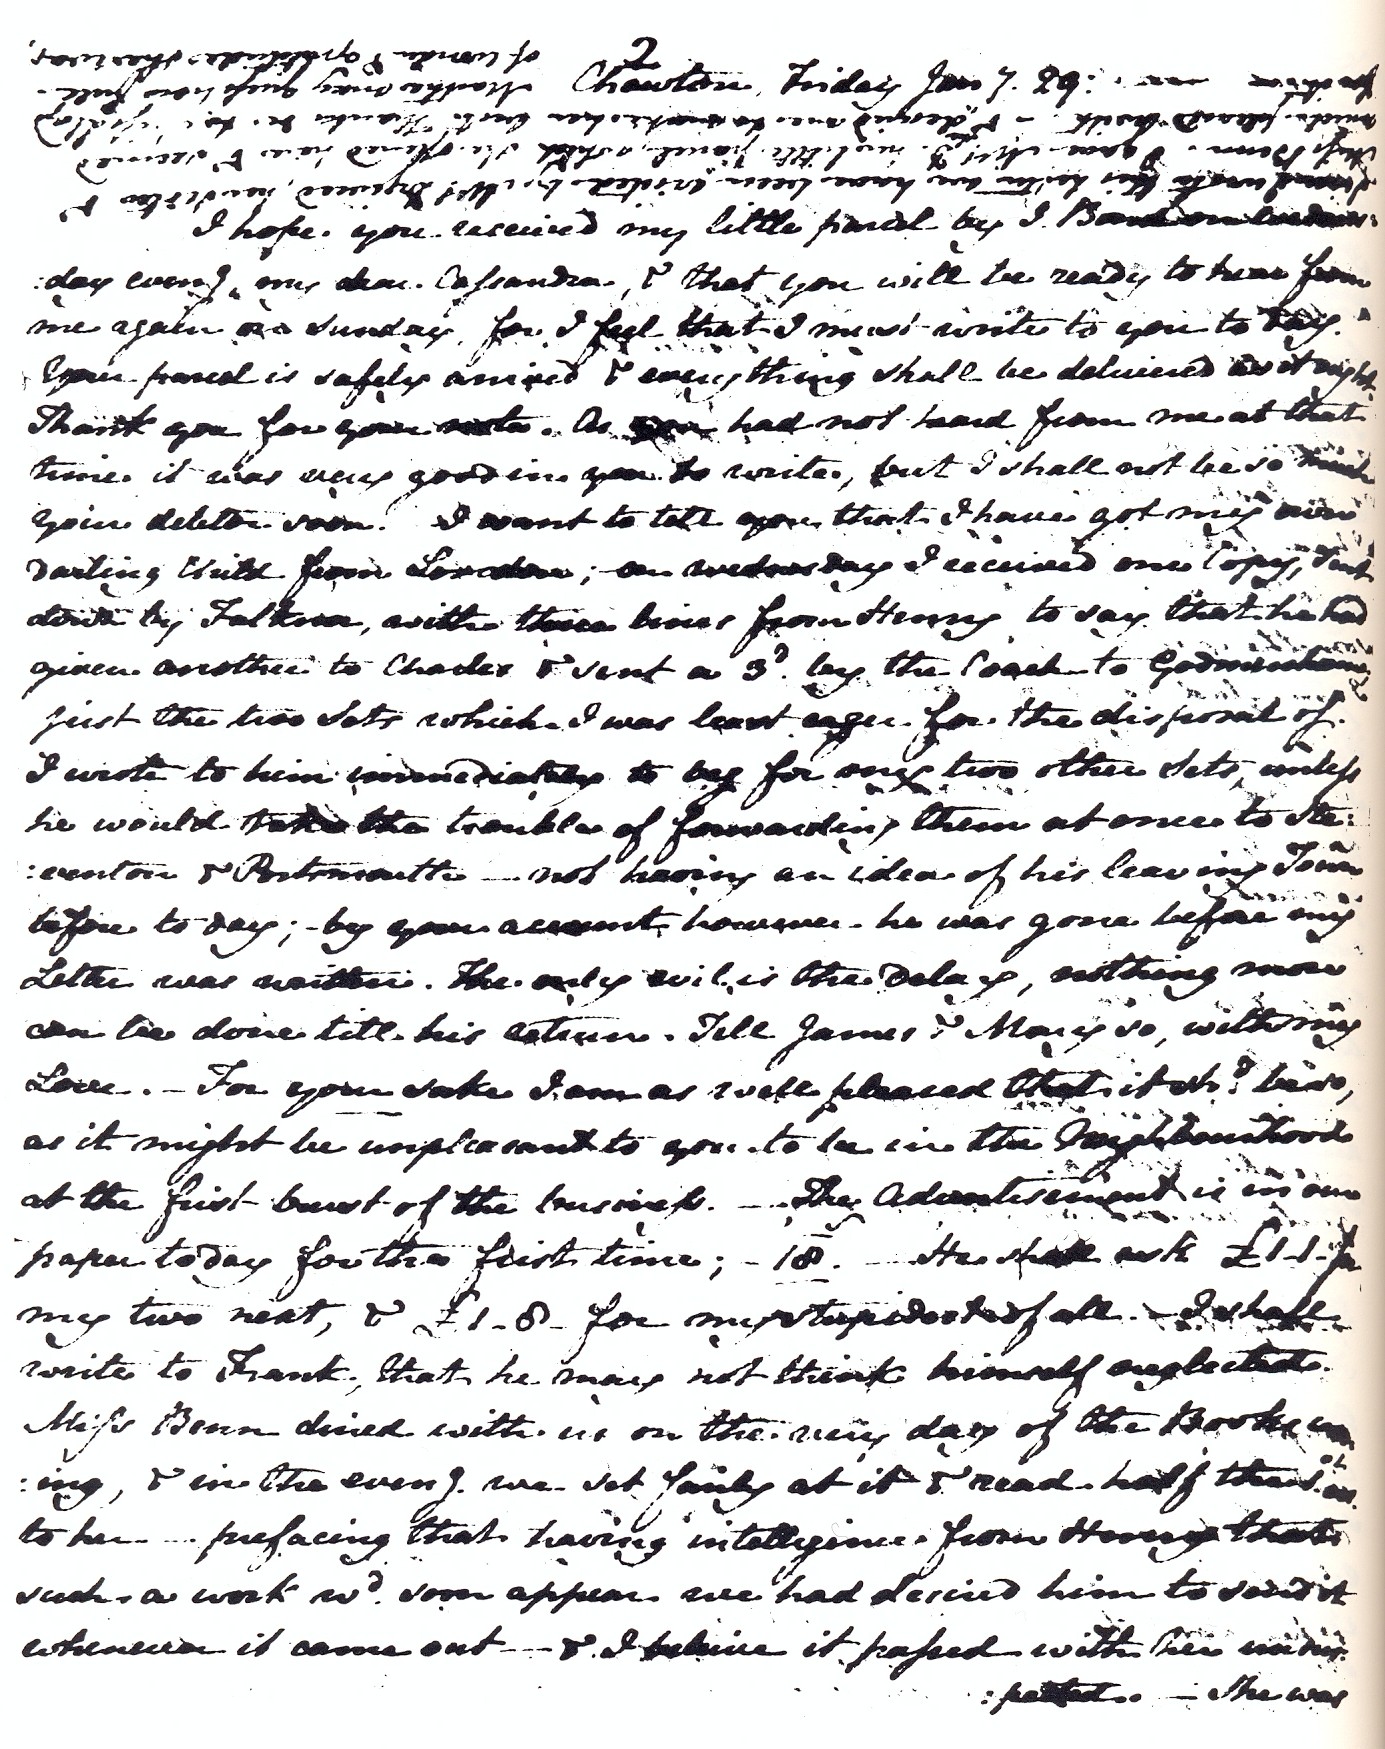 2
Chawton, Friday Jany. 29.
I hope you received my little parcel by J. Bond on Wednes:
:day eveng, my dear Cassandra, & that you will be ready to hear from
me again on Sunday, for I feel that I must write to you to day.
Your parcel is safely arrived & everything shall be delivered as it ought.
Thank you for your note. As you had not heard from me at that
time it was very good in you to write, but I shall not be so much
your debtor soon. I want to tell you that I have got my own
darling Child from London; on Wednesday I received one Copy, sent
down by Falknor, with three lines from Henry to say that he had
given another to Charles & sent a 3d. by the Coach to Godmersham;
just the two Sets which I was least eager for the disposal of.
I wrote to him immediately to beg for my two other Sets, unless
he would take the trouble of forwarding them at once to Ste:
:venton & Portsmouth — not having an idea of his leaving Town
before to day; - by your account however he was gone before my
Letter was written. The only evil is the delay, nothing more
can be done till his return. Tell James & Mary so, with my
Love. - For your sake I am as well pleased that it shd. be so,
as it might be unpleasant to you to be in the Neighbourhood
at the first burst of the business. - The Advertisement is in our
paper to day for the first time; - 18s. - He shall ask £1-1- for
my two next, & £1-8- for my stupidest of all. - I shall
write to Frank, that he may not think himself neglected.
Miss Benn dined with us on the very day of the Books com
:ing, & in the eveng. we set fairly at it & read half the 1st. vol.
to her - prefacing that having intelligence from Henry that
such a work wd. soon appear we had desired him to send it
whenever it came out — & I believe it passed with her unsus:
:pected. - She was
Since I wrote this Letter we have been visited by Mrs. Digweed, her Sister &
Miss Benn. I gave Mrs. D. her little parcel, which she opened here & seemed
much pleased with - & she desired me to make her best Thanks &c. to Miss Lloyd
for it. Martha may guess how full
of wonder & gratitude she was.